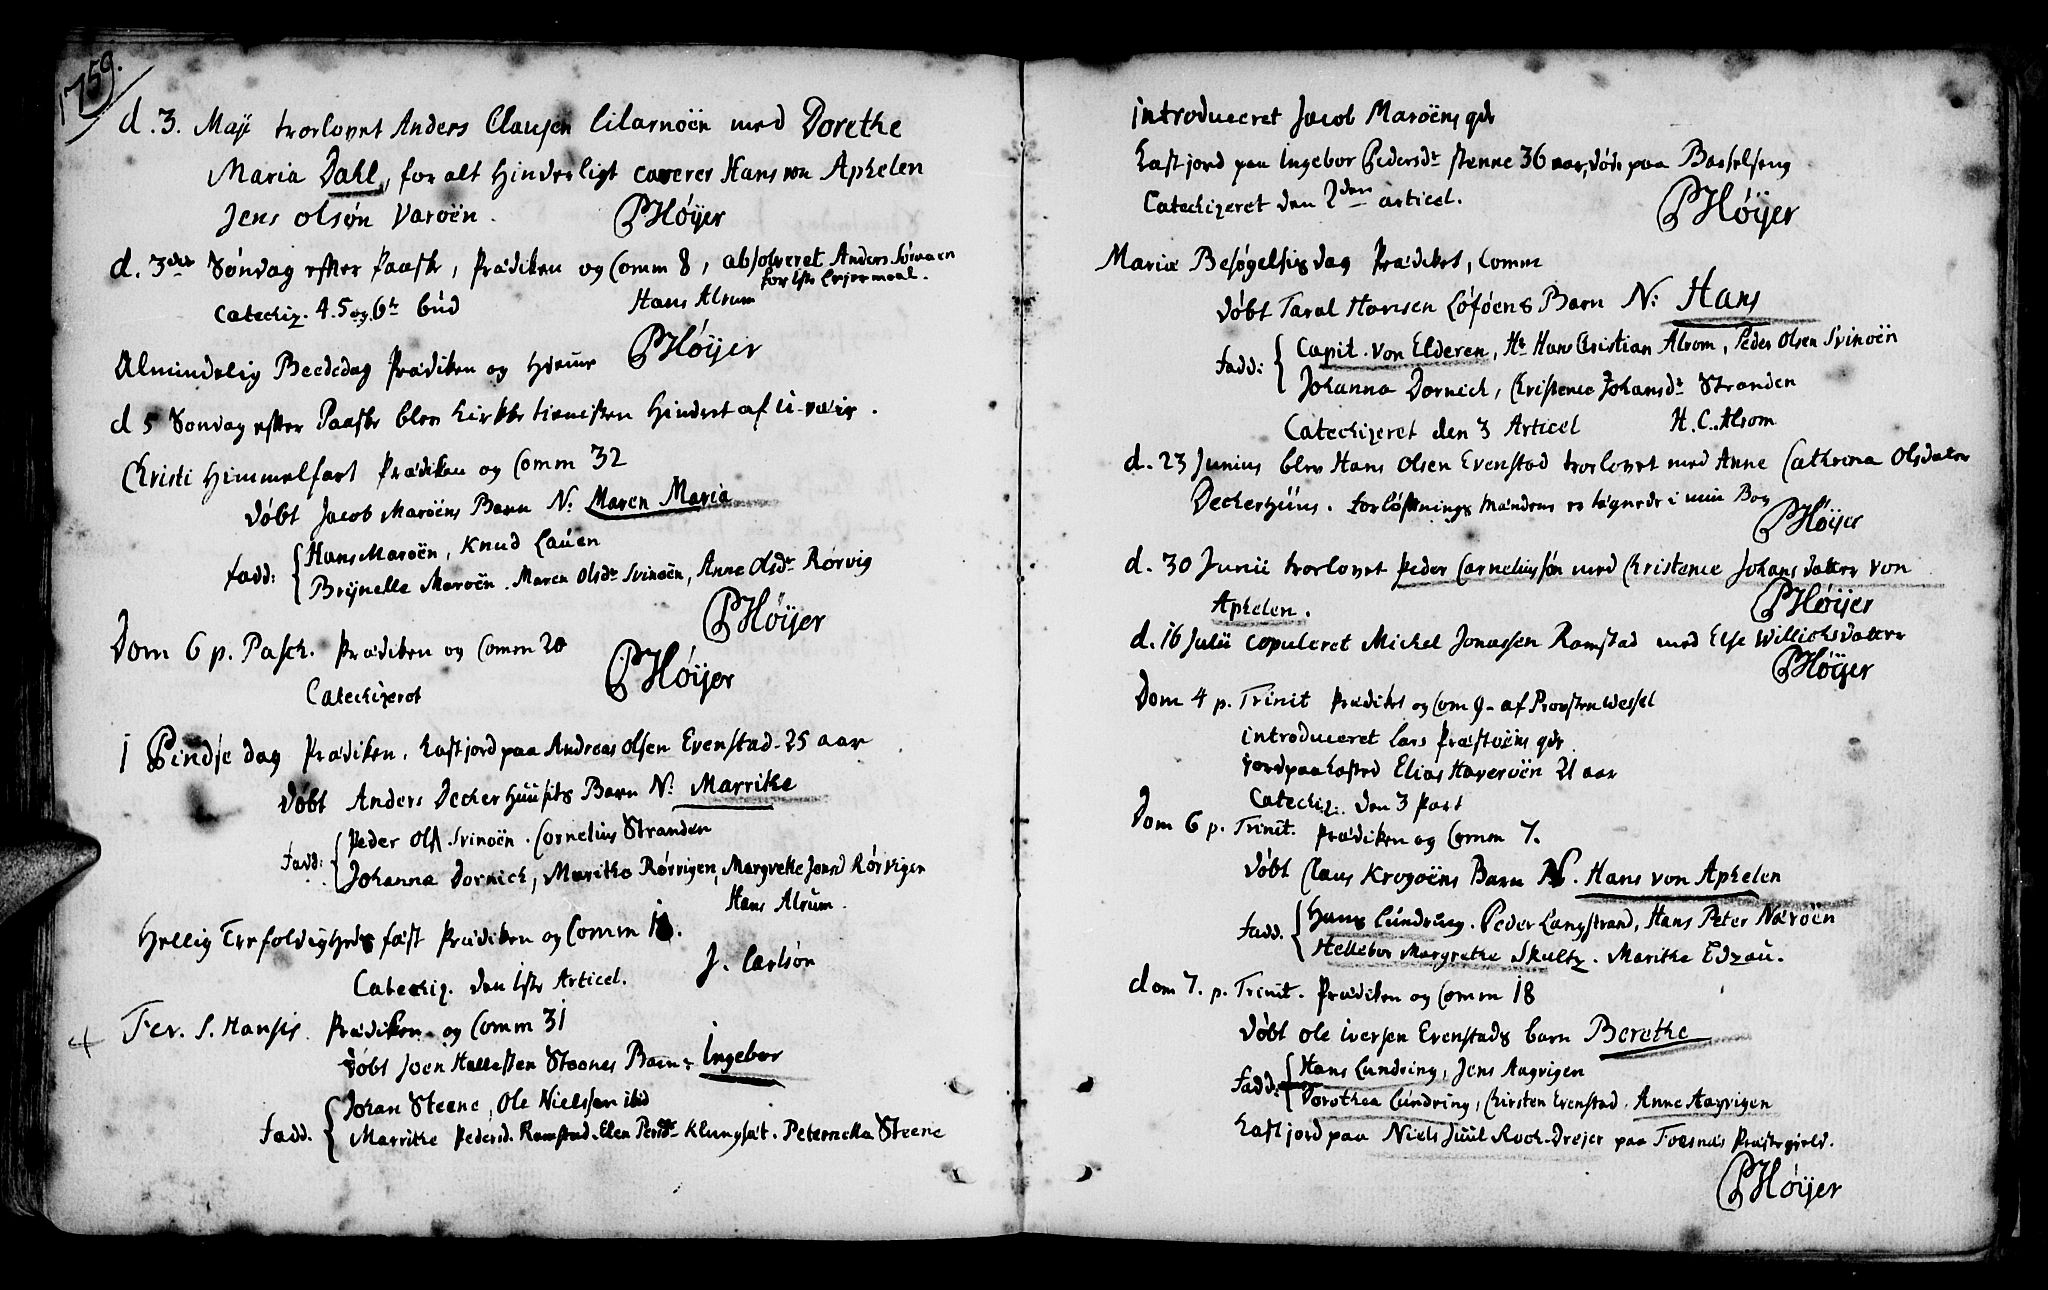 1759.
d. 3. Maji trorlovet Anders Clausen Lilarnöen med Dorethe
Maria Dahl, for alt Hinderligt caverer Hans von Aphelen
Jens olsøn Varoën. PHöijer
d. 3die Søndag efter Paaske, Prædiken og Comm 8, absolveret Anders
for 1ste Leyermaal.
Catechiz. 4. 5 og 6te bud Hans Alrum
PHöijer
Almindelig Beededag Prædiken og
d 5 Søndag efter Paaske blev Kirketienesten Hindret af u-veir.
Christi Himmelfart Prædiken og Comm 32
Døbt Jacob Maroëns Barn N: Maren Maria
fadd: Hans Maroën, Knud Lauen
Brynelle Maroën. Maren Olsdr Svinoën, Anne Olsdr Rørvig
PHöijer
Dom 6 p. Pasch. Prædiken og Comm 20
Catechizeret PHöijer
1 Pindse dag Prædiken. Kast jord paa Andreas olsen Evenstad 25 aar
Døbt Anders Deckerhuusets Barn N. Marrike
fadd: Peder Ols. Svinoën. Cornelius Stranden
Johanna Dornick, Maritha Rørvigen, Margrethe Jonsd Rørvigen
Hans Alrum.
Hellig Trefoldigheds fæst Prædiken og Comm 18.
Catechiz. den 1ste Articel. J. Carlsøn
Fer. S. Hansis Prædiken og Comm 31
Døbt Joen Hallesten Steenes Barn: Ingebor
fadd. Johan Steene, Ole Nielssen ibid
Marrike Pedersd. Ramstad. Elen Persdr Klungset. Peternella Steene
introduceret Jacob Maroëns qde
Kast jord paa Ingebor Pedersdr stenne 36 aar, døde paa Barselseng
Catechizeret den 2den articel. PHöijer
Mariæ Besøgelsis dag Prædiket, Comm
Døbt Taral Hansen Løføens Barn N: Hans
fadd: Capit. von Elderen, Hr Hans Christian Alrom, Peder Olsen Svinoën
Johanna Dornick, Christence Johansdr Stranden
Catechizeret den 3 Articel H. C. Alrom
d. 23 Junius blev Hans Olsen Evenstad trorlovet med Anne Cathrina Olsdater
Deckerhuus. forløftnings Mændene er tegnede i min Bog
PHöijer
d. 30 Junii trorlovet Peder Corneliussøn med Christence Johansdatter von
Aphelen. PHöijer
d. 16 Julii copuleret Michel Jonassen Ramstad med Else Willichsdatter
PHöijer
Dom 4 p. Trinit Prædiket og Com 9- af Provsten Wessel
introduceret Lars Præstöens qde
Jord paa kasted Elias Haveroën 21 aar
Catechiz. den 3 Part
Dom 6 p. Trinit. Prædiken og Comm 7.
Døbt Claus Krogoëns Barn N. Hans von Aphelen
fadd. Hans Lundring. Peder Langstrand, Hans Peter Næroën
Hellebor Margrethe Skultz. Maritke Edzau.
dom 7. p. Trinit. Prædiken og Comm 18
Døbt Ole iversen Evenstads barn Berethe
fadd: Hans Lundring, Jens Aagvigen
Dorothea Lundring, Kirsten Evenstad. Anne Aagvigen
Kast jord paa Niels Juul Rock-Drejer paa Foesnæs Præstegield.
PHöijer